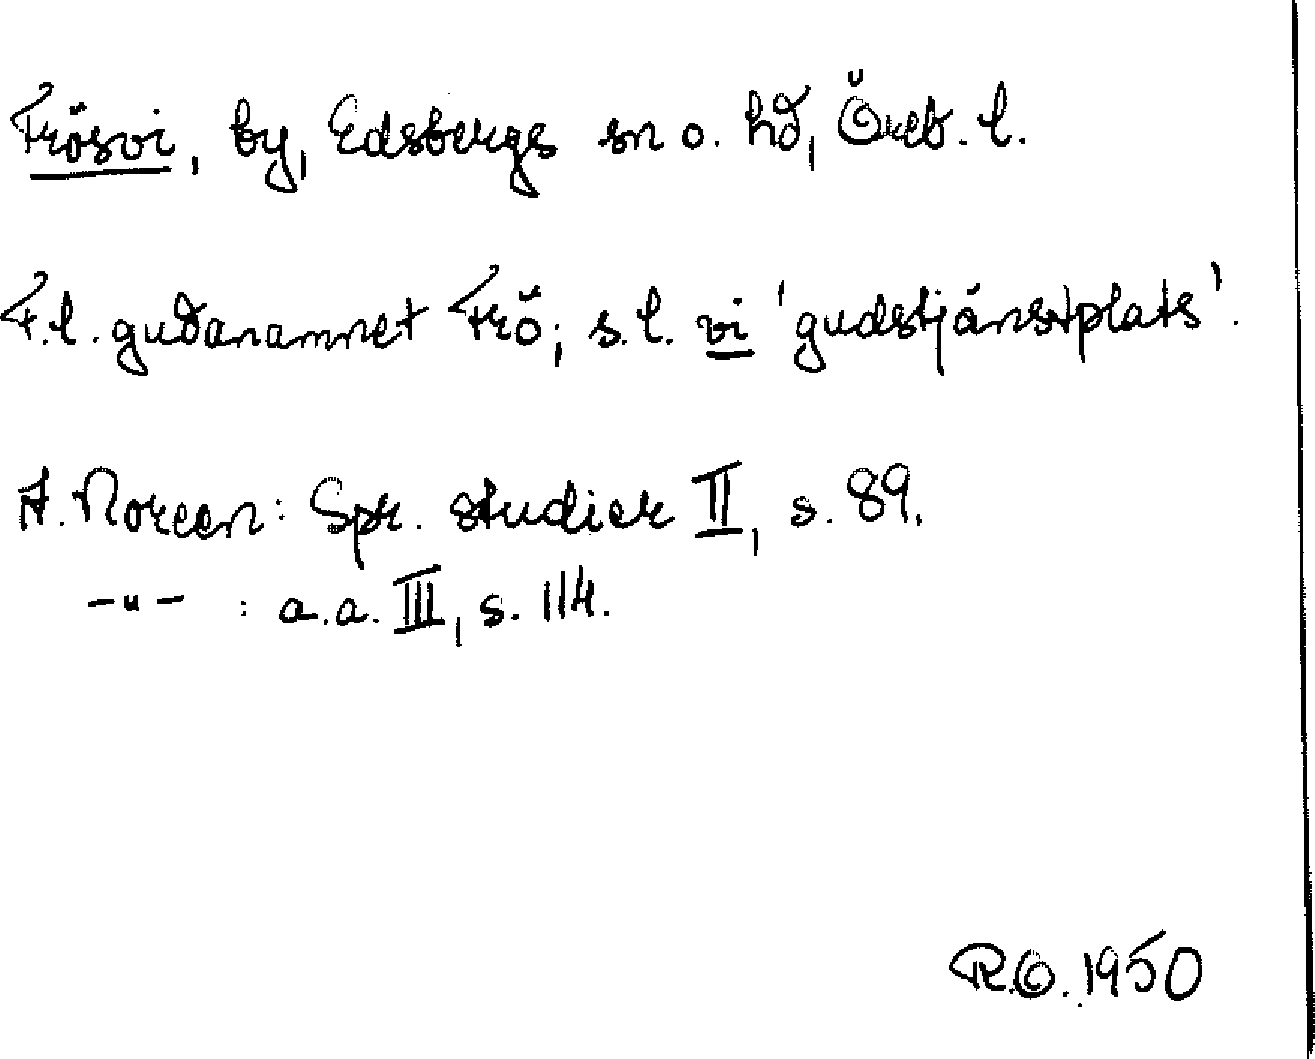 Frösvi, by, Edsbergs sn o. hd, Öreb. l.
F.l. gudanamnet Frö; s.l. vi 'gudstjänstplats'.
A. Noreen: Spr. studier II, s. 89.
-"- : a.a. III, s. 114.
R.O. 1950